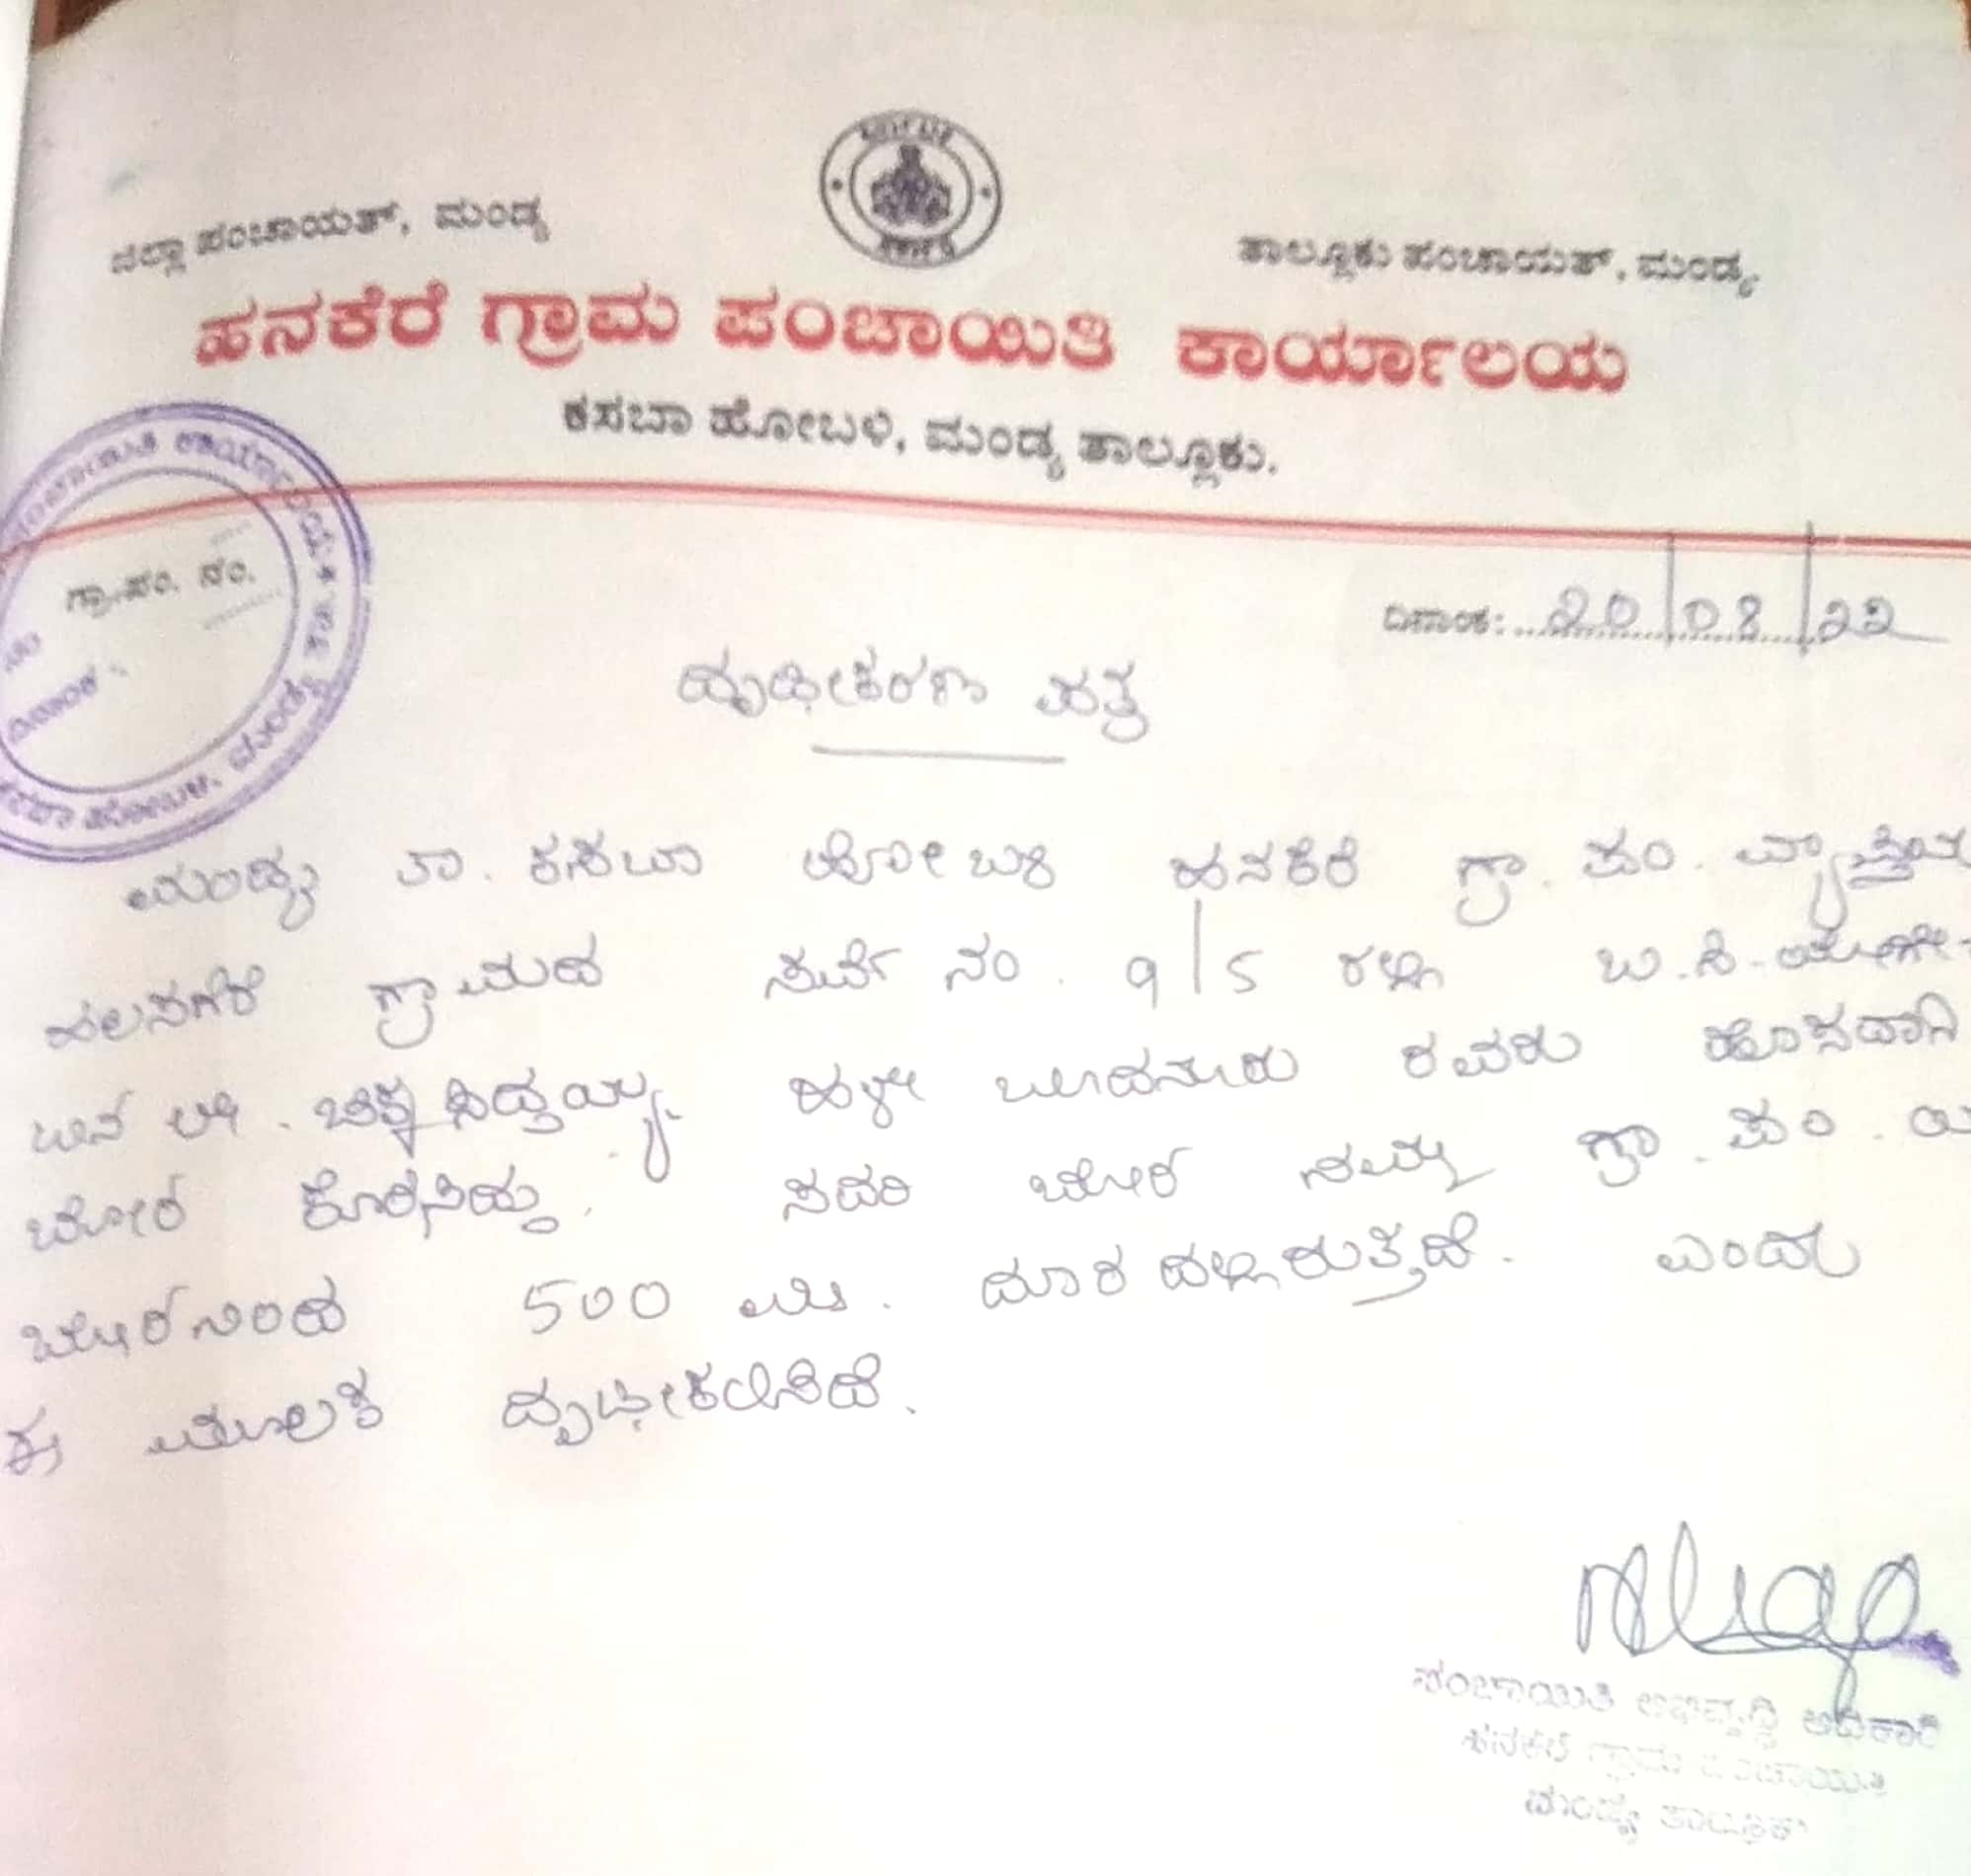 ಜಿಲ್ಲಾ ಪಂಚಾಯತ್, ಮಂಡ್ಯ
ತಾಲ್ಲೂಕು ಪಂಚಾಯತ್, ಮಂಡ್ಯ
ಹನಕೆರೆ ಗ್ರಾಮ ಪಂಚಾಯಿತಿ ಕಾರ್ಯಾಲಯ
ಕಸಬಾ ಹೋಬಳಿ, ಮಂಡ್ಯ ತಾಲ್ಲೂಕು.
ಗ್ರಾ.ಪಂ. ನಂ.
ದಿನಾಂಕ
ದಿನಾಂಕ: 20/08/22
ದೃಢೀಕರಣ ಪತ್ರ
ಮಂಡ್ಯ ತಾ. ಕಸಬಾ ಹೋಬಳಿ ಹನಕೆರೆ ಗ್ರಾ. ಪಂ. ವ್ಯಾಪ್ತಿಯ
ಗ್ರಾಮದ ಸರ್ವೆ ನಂ. 9/5 ರಲ್ಲಿ ಬಿ.ಸಿ.
ಬಿನ್ ಲೇ. ಚಿಕ್ಕಸಿದ್ದಯ್ಯ ಹಳೇ ಬೂದನೂರು ರವರು ಹೊಸದಾಗಿ
ಬೋರ್ ಕೊರೆಸಿದ್ದು. ಸದರಿ ಬೋರ್ ನಮ್ಮ ಗ್ರಾ. ಪಂ. ಯ
ಬೋರ್‌ನಿಂದ 500 ಮೀ. ದೂರದಲ್ಲಿರುತ್ತದೆ. ಎಂದು
ಈ ಮೂಲಕ ದೃಢೀಕರಿಸಿದೆ.
ಪಂಚಾಯಿತಿ ಅಭಿವೃದ್ಧಿ ಅಧಿಕಾರಿ
ಹನಕೆರೆ ಗ್ರಾಮ ಪಂಚಾಯಿತಿ
ಮಂಡ್ಯ ತಾಲ್ಲೂಕು